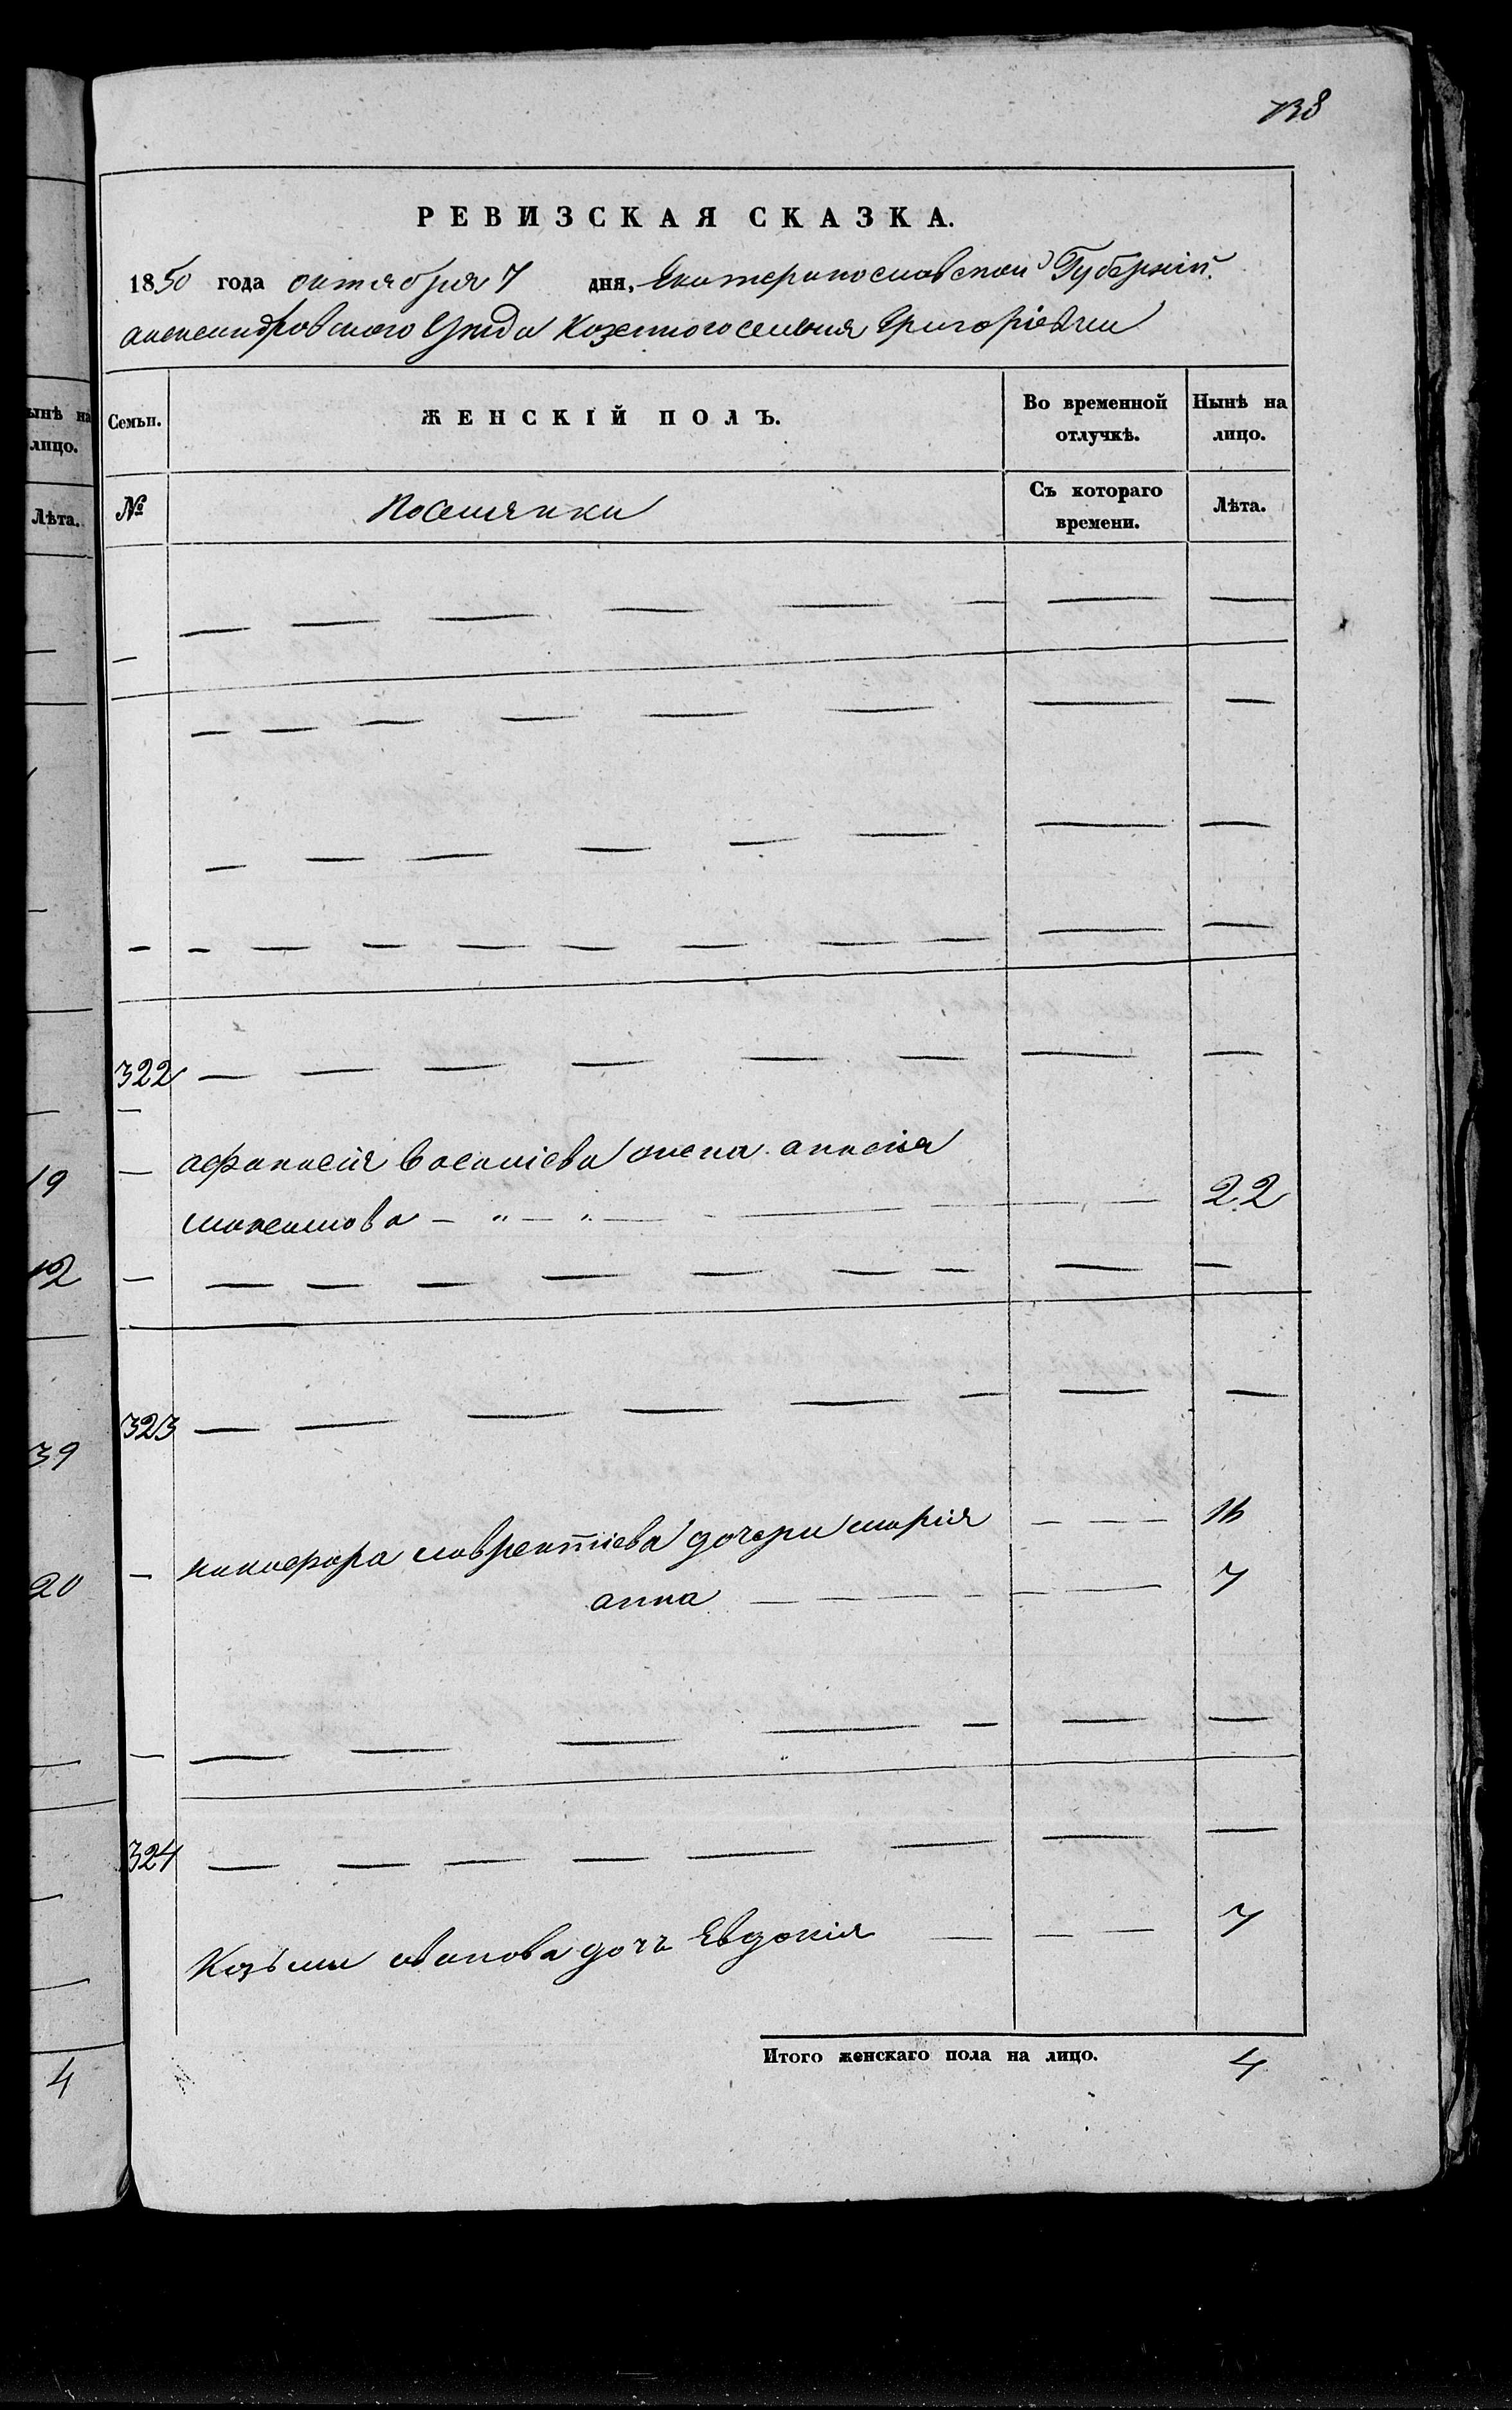 738
РЕВИЗСКАЯ СКАЗКА.
1850 года октября 7 дня, Екатеринославской Губерніи
александровского Уезда Казенного селенія Григоріевки
Семьи. ЖЕНСКІЙ ПОЛЪ. Во временной отлучкѣ. Нынѣ на лицо.
№ Поселянки Съ котораго времени. Лѣта.
322
афанасія Василіева жена анасія
максимова — „ — „ — 22
323
никифора лаврентіева дочери марія 16
анна 7
324
Козьмы иванова дочь Евдокія 7
Итого женскаго пола на лицо. 4
ынѣ на
лицо.
Лѣта.
19
12
39
20
4